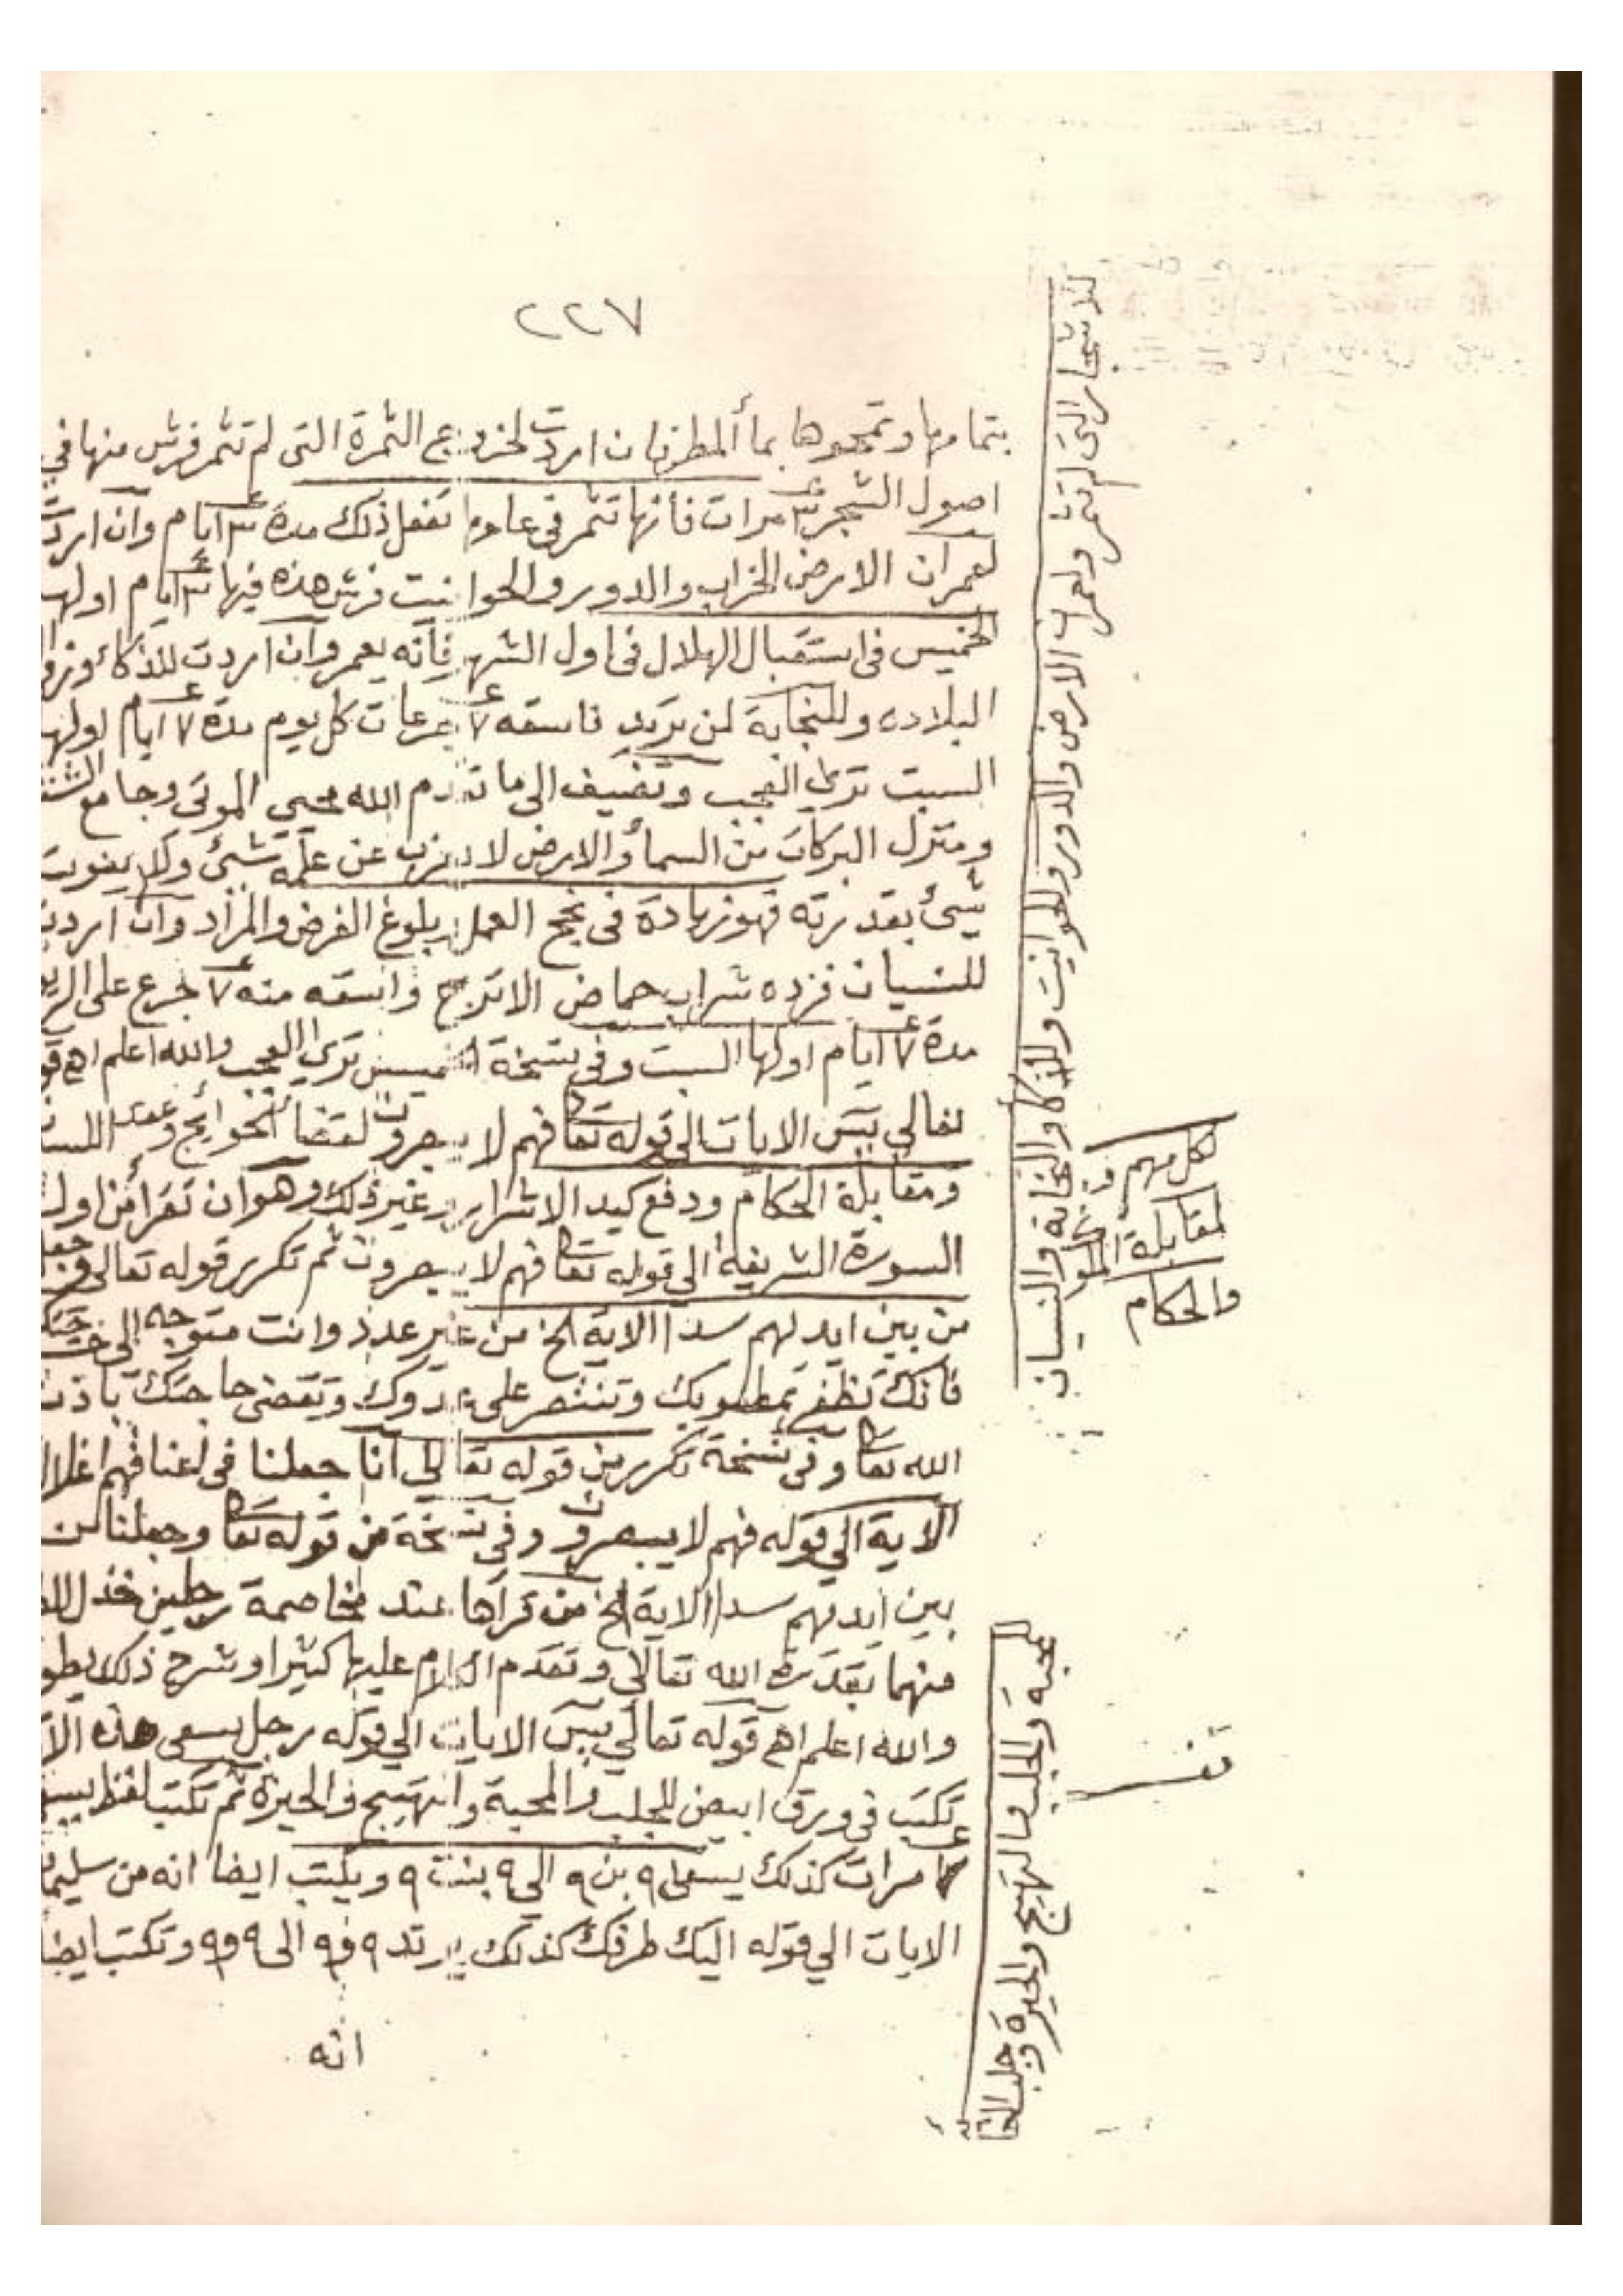 ٢٢٧
بتمامها وتمحوها بماء المطر فان اردت لخروج الثمرة التى لم تثمر فرش منها في
اصول الشجر ٣ مرات فأنها تثمر فى عامها تفعل ذلك مدة ٣ ايام وان اردت
لعمران الارض الخراب والدور والحوانيت فرش هذه فيها ٣ ايام اولها
الخميس فى استقبال الهلال فى اول الشهر فانه يعمر وان اردت للذكاء
البلاده وللنجابة لمن تريد فاسقه ٧ جرعات كل يوم مدة ٧ ايام اولها
السبت ترى العجب وتضيف الى ما تقدم الله محيى الموتى وجامع
ومنزل البركات من السمأ والارض لا يعزب عن علمه شئ ولا يفوت
شيئ بقدرته فهو زيادة فى نجح العمل وبلوغ الغرض والمراد وان اردت
للنسيان فزده شراب حماض الاترج واسقه منه ٧ جرع على
مدة ٧ ايام اولها السبت وفى نسخة الخميس ترى العجب والله اعلم اهـ
تعالي يس الايات الى قوله تعا فهم لا يبصرون لقضاء الحوايج وعقد
ومقابلة الحكام ودفع كيد الاشرار وغير ذلك وهو ان تقرأ من اول
السورة الشريفة الى قوله تعا فهم لا يبصرون ثم تكرر قوله تعالى وجعلنا
من بين ايديهم سدا الاية الخ من غير عدد وانت متوجه الى
فانك تظفر بمطلوبك وتنتصر على عدوك وتقضى حاجتك باذن
الله تعا وفى نسخة تكرر من قوله تعالي انا جعلنا فى اعناقهم اغلالا
الاية الي قوله فهم لا يبصرون وفي نسخة من قوله تعا وجعلنا من
بين ايديهم سدا الاية الخ من قرأها عند مخاصمة رجلين خذل
منهما بقدرة الله تعالي وتقدم الكلام عليها كثيرا وشرح ذلك يطول
والله اعلم اهـ قوله تعالي يس الايات الي قوله رجل يسعى هذه
تكتب فى ورق ابيض للجلب والمحبة والتهييج والحيرة ثم تكتب لفظ
مرات كذلك يسعى ٩ بن ٩ الي ٩ بنت ٩ ويكتب ايضا انه من
الايات الي قوله اليك طرفك كذلك يرتد ٩ و٩ الى ٩ و٩ وتكتب ايضا
انه
للاشجار التى لم تثمر ولعمران الارض والدور والحوانيت وللذكا والنجابة والنسيان
لكل مهم و
لمقابلة
والحكام
للمحبة والجلب والتهييج والحيرة وجلب